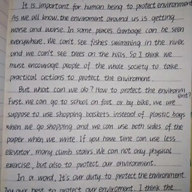 It is important for human being to protect environment.
As we all know, the environment around us is getting
worse and worse. In some places, Garbage can be seen
everywhere. We can't see fishes swimming in the river
and we can't see trees on the hills. So I think we
must encourage people of the whole society to take
practical actions to protect the environment.
But what can we do? How to protect the environment
First, we can go to school on foot or by bike, we are
suppose to use shopping baskets instead of plastic bags
when we go shopping and we can use both sides of the
paper when we write. If you have time can use less
elevator, many climb stairs. We can not only physical
exercise, but also to protect our environment.
In a word, it's our duty to protect the environment.
Try our best to protect our environment. I think the